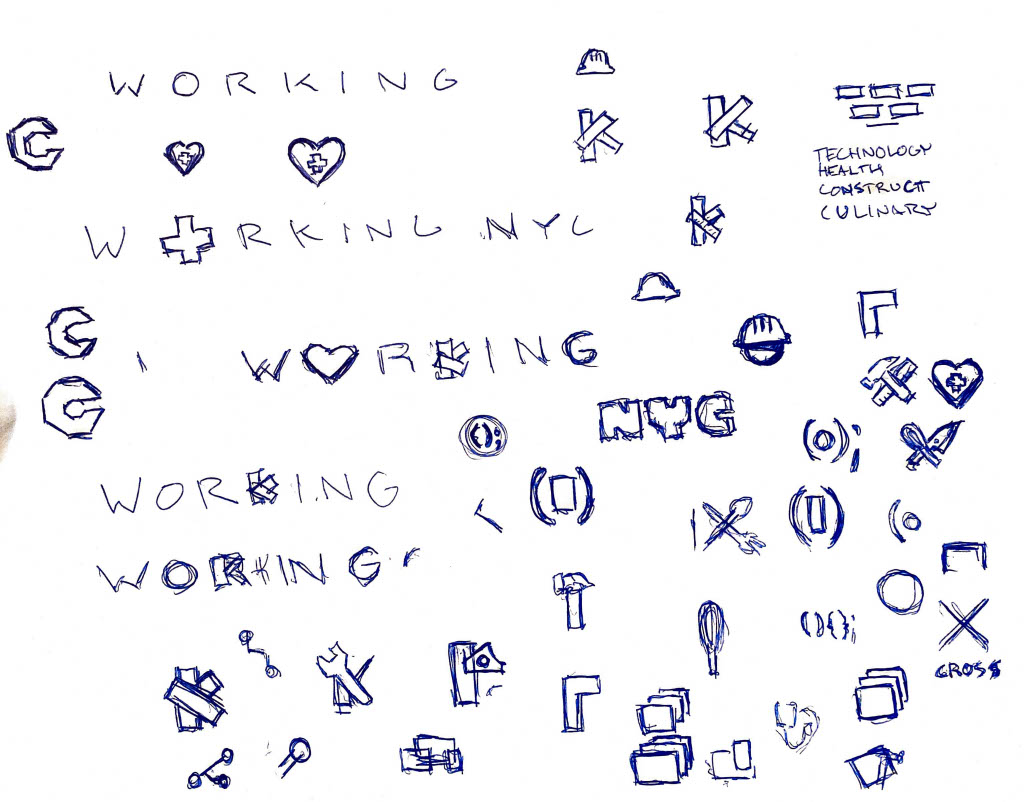 WORKING
TECHNOLOGY
HEALTH
CONSTRUCT
CULINARY
W RKING NYC
W RKING
NYC
();
();
WORKING
WORKING
(){};
CROSS